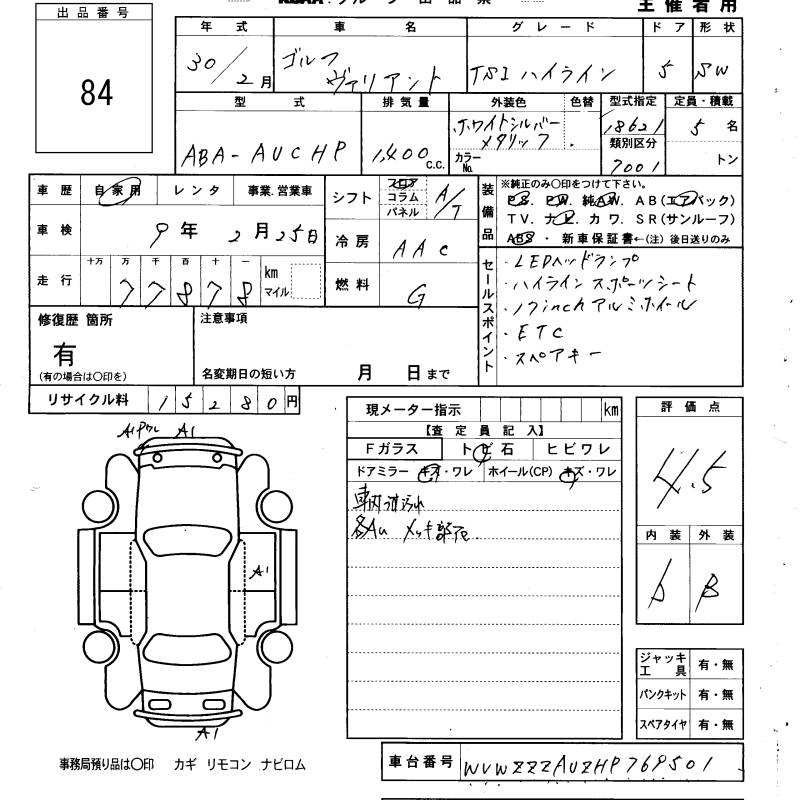 主催者用
出品番号
84
年式 車名 グレード ドア 形状
30/2月 ゴルフ ヴァリアント TSI ハイライン 5 SW
型式 排気量 外装色 色替 型式指定 定員・積載
ABA-AUCHP 1,400 c.c. ホワイトシルバー メタリック カラーNo. 18621 5名
類別区分
7001 トン
車歴 自家用 レンタ 事業.営業車
車検 9年 2月25日
走行 十万 万 千 百 十 一
77878 km マイル
シフト フロア コラム パネル A/T
冷房 AAC
燃料 G
装備品 ※純正のみ〇印をつけて下さい。
PS. PW. 純AW. AB(エアバック)
TV. ナビ. カワ. SR(サンルーフ)
ABS ・ 新車保証書←(注) 後日送りのみ
セールスポイント
・LEDヘッドランプ
・ハイラインスポーツシート
・17inchアルミホイール
・ETC
・スペアキー
修復歴 箇所
有
(有の場合は〇印を)
注意事項
名変期日の短い方 月 日まで
リサイクル料 15280円
現メーター指示 km
【査定員記入】
Fガラス トビ石 ヒビワレ
ドアミラー キズ・ワレ ホイール(CP) キズ・ワレ
メッキ部
評価点
4.5
内装 外装
b B
A1 A1
A1
A1
ジャッキ 工具 有・無
パンクキット 有・無
スペアタイヤ 有・無
事務局預り品は〇印 カギ リモコン ナビロム
車台番号 WVWZZZAUZHP769501